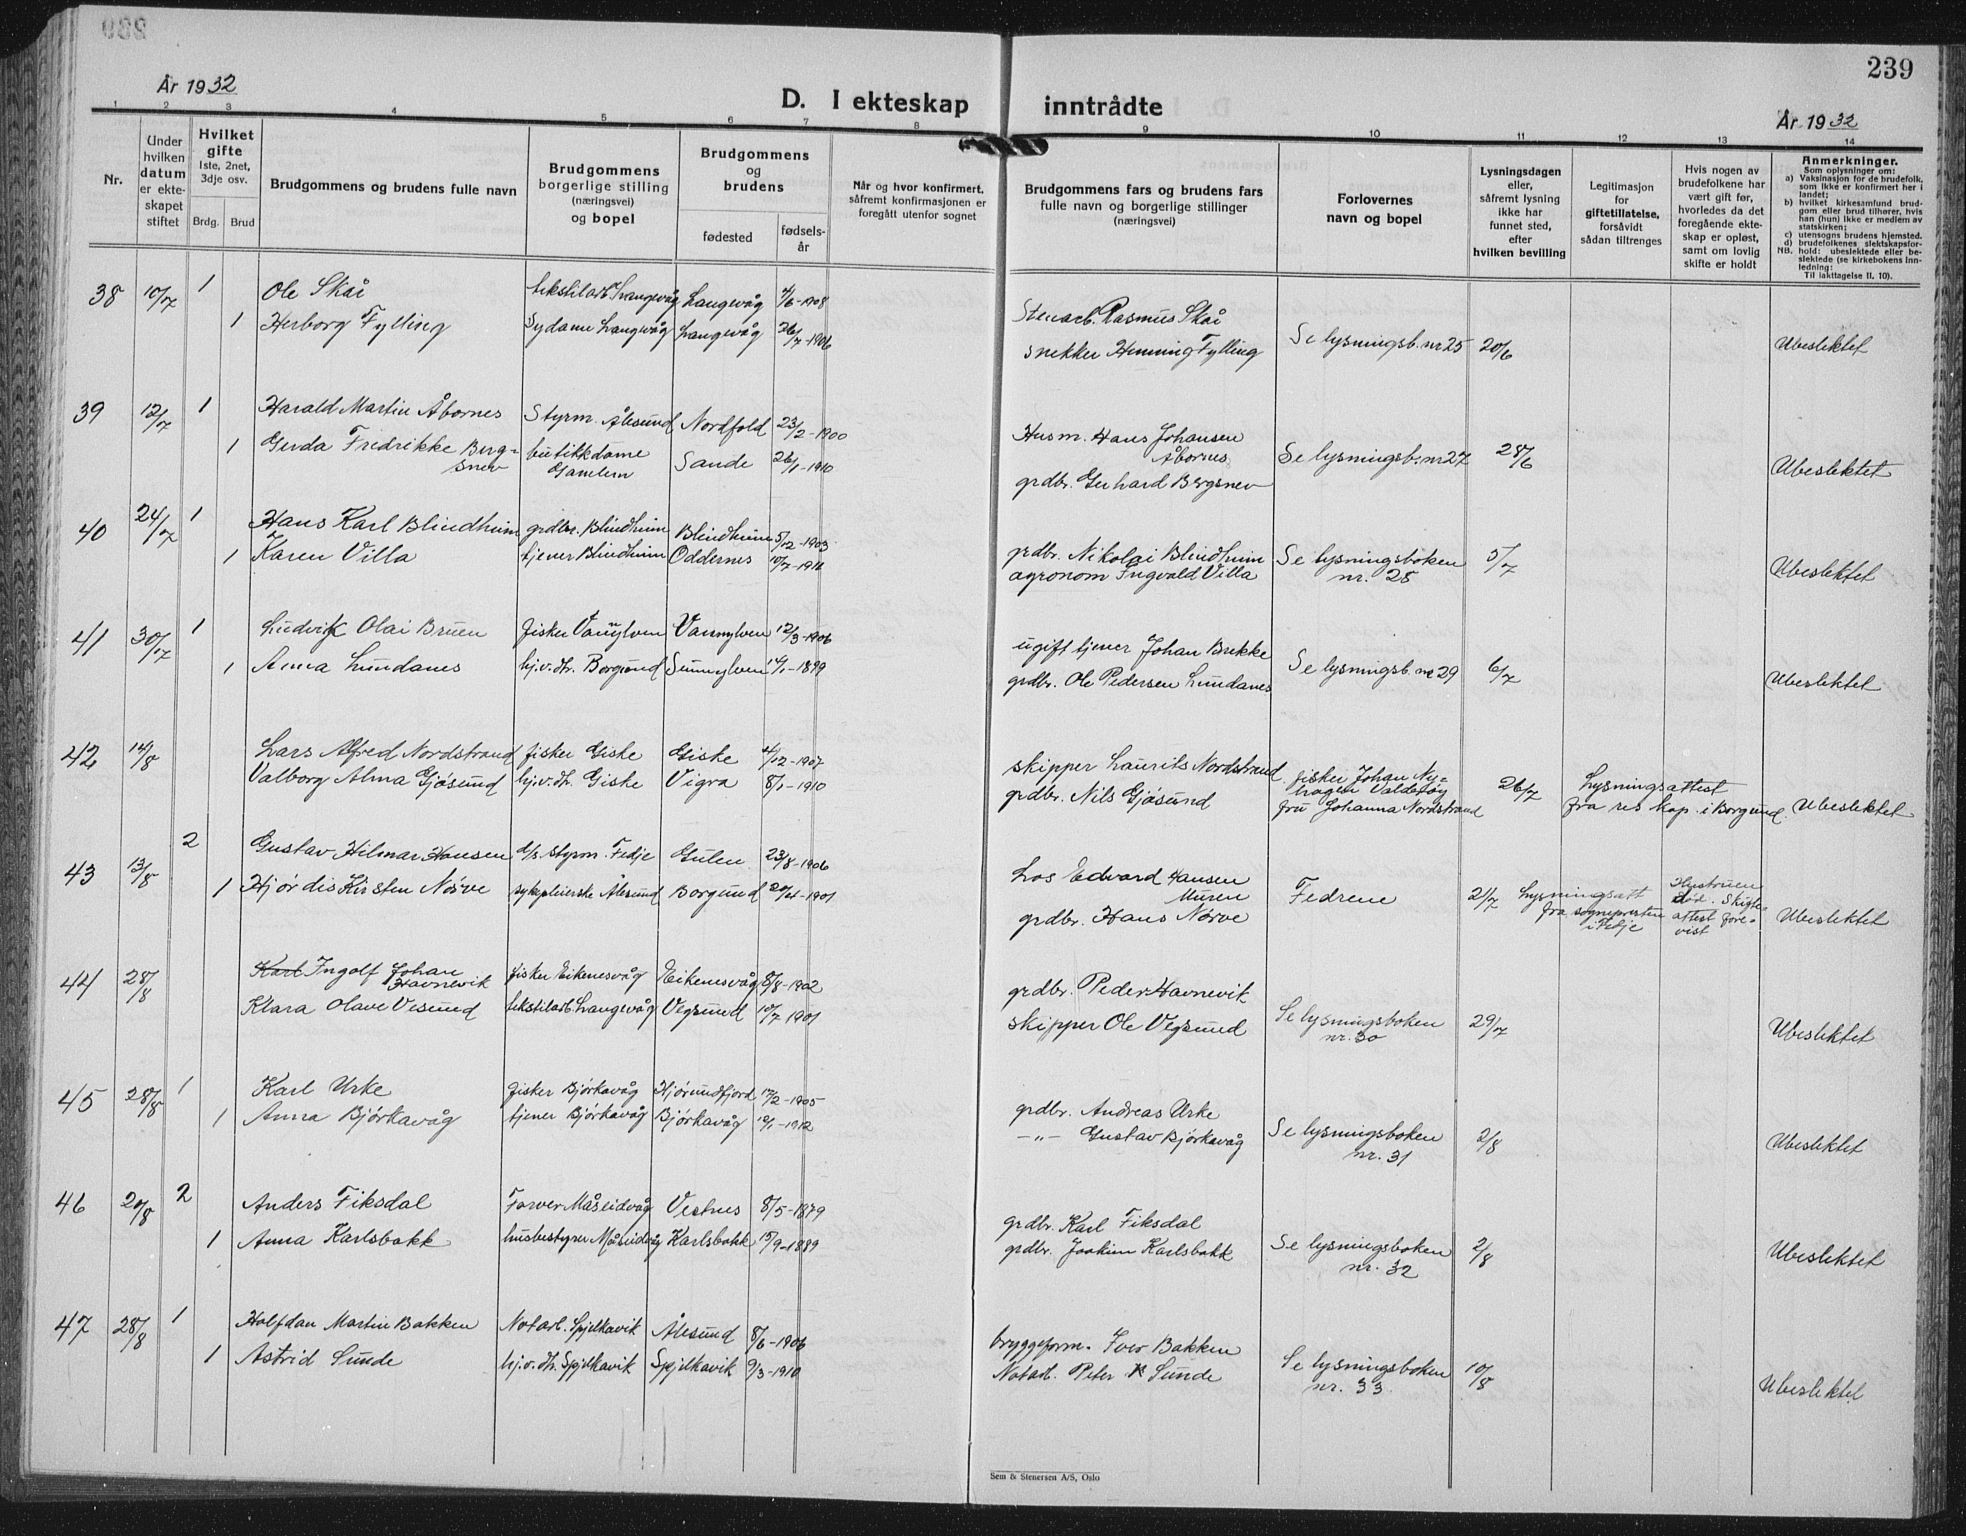 239
År 1932
D. I ekteskap inntrådte
År 1932
1 2 3 4 5 6 7 8 9 10 11 12 13 14
Nr.
Under hvilken datum er ekteskapet stiftet
Hvilket gifte
1ste, 2net, 3dje osv.
Brdg. Brud
Brudgommens og brudens fulle navn
Brudgommens borgerlige stilling (næringsvei) og bopel
Brudgommens og brudens
fødested
fødselsår
Når og hvor konfirmert, såfremt konfirmasjonen er foregått utenfor sognet
Brudgommens fars og brudens fars fulle navn og borgerlige stillinger (næringsvei)
Forlovernes navn og bopel
Lysningsdagen eller, såfremt lysning ikke har funnet sted, efter hvilken bevilling
Legitimasjon for giftetillatelse, forsåvidt sådan tiltrenges
Hvis nogen av brudefolkene har vært gift før, hvorledes da det foregående ekteskap er opløst, samt om lovlig skifte er holdt
Anmerkninger.
Som oplysninger om:
a) Vaksinasjon for de brudefolk, som ikke er konfirmert her i landet;
b) hvilket kirkesamfund brudgom eller brud tilhører, hvis han (hun) ikke er medlem av statskirken;
c) utensogns brudens hjemsted.
d) brudefolkenes slektskapsforhold: ubeslektede eller beslektede (se kirkebokens innledning:
NB. Til iakttagelse II. 10).
38 10/7 1 Ole Skåi tekstilarb. Langevåg Langevåg 4/6-1908 Stenarb. Rasmus Skåi
1 Herborg Fylling Sydame Langevåg Langevåg 26/7-1906 snekker Henning Fylling Se lysningsb. nr 25 20/6 Ubeslektet
39 12/7 1 Harald Martin Åbornes Styrm. Ålesund Nordfold 23/2-1900 Husm. Hans Johansen Åbornes
1 Gerda Fredrikke Bergsnev butikkdame Gamlem Sande 26/1-1910 grdbr. Gerhard Bergsnev Se lysningsb. nr 27 28/6 Ubeslektet
40 24/7 1 Hans Karl Blindheim grdbr. Blindheim Blindheim 5/12-1903 grdbr. Nikolai Blindheim
1 Karen Villa tjener Blindheim Oddernes 10/7-1911 agronom Ingvald Villa Se lysningsboken nr. 28 5/7 Ubeslektet
41 30/7 1 Ludvik Olai Bruen fisker Vannylven Vannylven 12/3-1906 ugift tjener Johan Brekke
1 Anna Lundanes hj.v. dtr. Borgund Sunnylven 14/1-1899 grdbr. Ole Pedersen Lundanes Se lysningsb. nr 29 6/7 Ubeslektet
42 14/8 Lars Alfred Nordstrand fisker Giske Giske 4/12-1907 skipper Laurits Nordstrand
Valborg Alma Gjøsund hj.v. dtr. Giske Vigra 8/1-1910 grdbr. Nils Gjøsund fisker Johan Nyhagen Valderøy fru Johanna Nordstrand 26/7 Lysningsattest fra res kap. i Borgund. Ubeslektet
43 13/8 2 Gustav Hilmar Hansen d/s styrm. Fedje Gulen 23/8-1906 Los Edvard Hansen Muren
1 Hjørdis Kirsten Nørve sykepleierske Ålesund Borgund 20/4-1901 grdbr. Hans Nørve Fedrene 2/7 Lysningsatt fra sognepresten i Fedje Hustruen død. Skifteattest forevist Ubeslektet
44 28/8 Karl Ingolf Johan Havnevik fisker Eikenesvåg Eikenesvåg 8/8-1902 grdbr. Peder Havnevik
Klara Olave Vesund tekstilarb. Langevåg Vegsund 10/7 1901 skipper Ole Vegsund Se lysningsboken nr. 30 29/7 Ubeslektet
45 28/8 1 Karl Urke fisker Bjørkavåg Hjørundfjord 17/2-1905 grdbr. Andreas Urke
1 Anna Bjørkavåg tjener Bjørkavåg Bjørkavåg 10/1-1912 -"- Gustav Bjørkavåg Se lysningsboken nr. 31 2/8 Ubeslektet
46 20/8 2 Anders Fiksdal Farver Måseidvåg Vestnes 8/5-1879 grdbr. Karl Fiksdal
1 Anna Karlsbakk husbestyrer Måseidvåg Karlsbakk 15/9-1889 grdbr. Joakim Karlsbakk Se lysningsboken nr. 32 2/8 Ubeslektet
47 28/8 1 Halfdan Martin Bakken Notarb. Spjelkavik Ålesund 8/6-1906 bryggeform. Iver Bakken
1 Astrid Sunde hj.v. dtr. Spjelkavik Spjelkavik 9/3-1910 Notarb. Peter K Sunde Se lysningsboken nr. 33 10/8 Ubeslektet
Sem & Stenersen A/S, Oslo